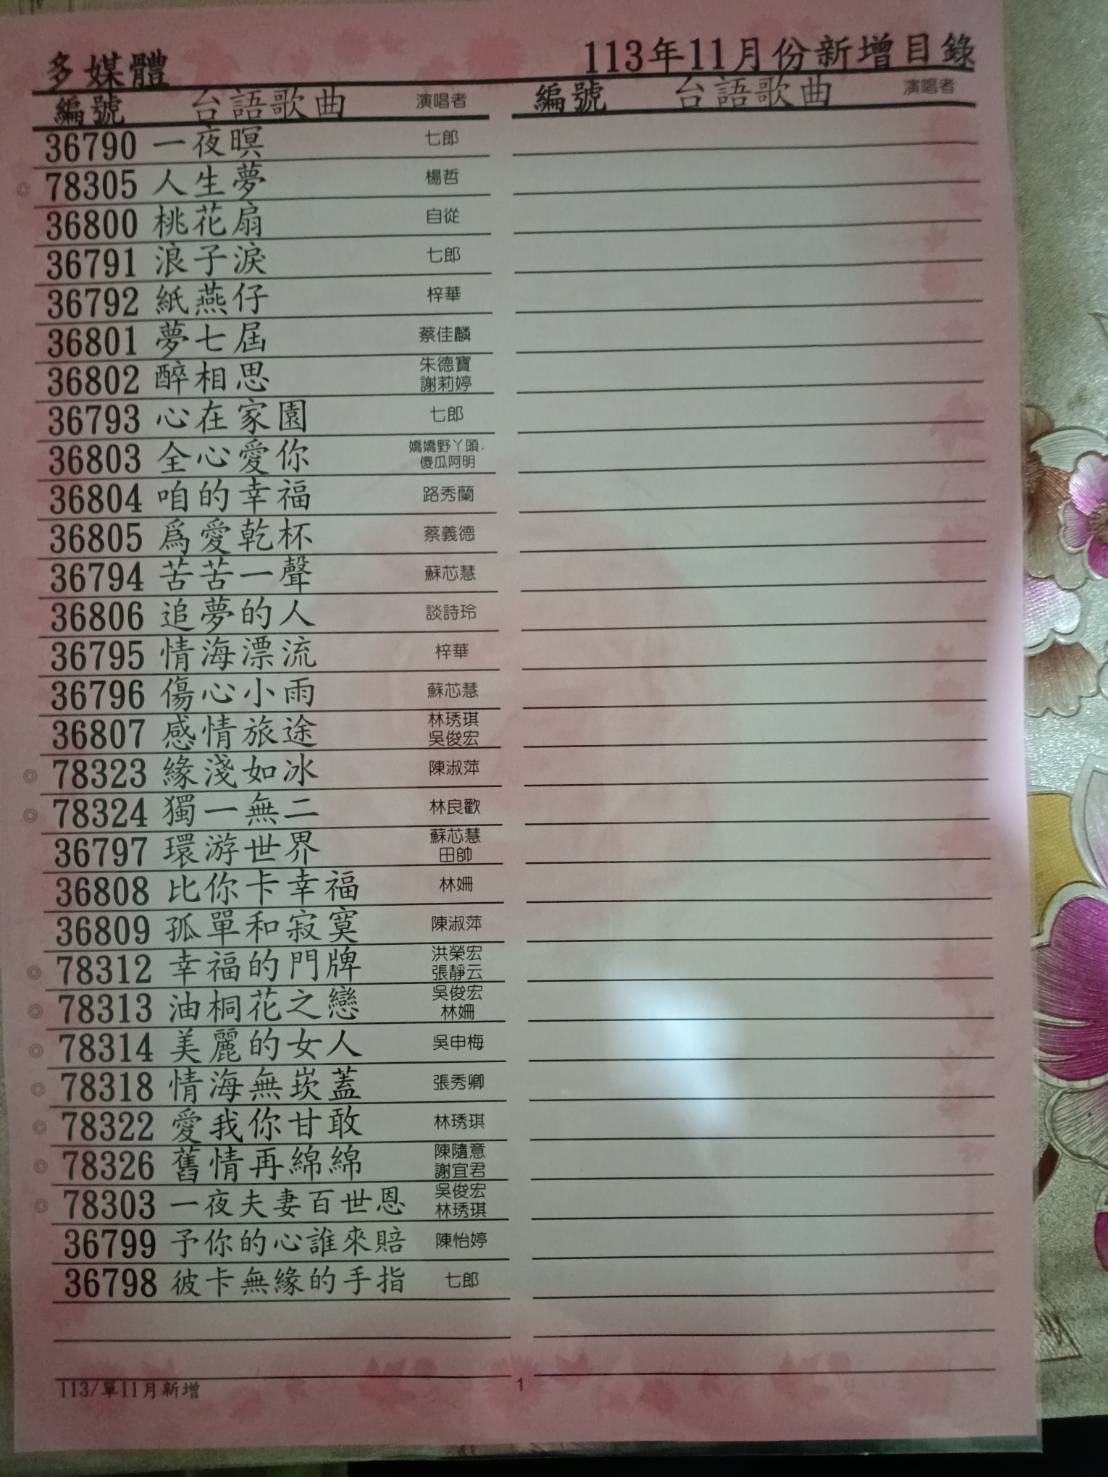 多媒體 113年11月份新增目錄
編號 台語歌曲 演唱者 編號 台語歌曲 演唱者
36790 一夜暝 七郎
◎ 78305 人生夢 楊哲
36800 桃花扇 自從
36791 浪子淚 七郎
36792 紙燕仔 梓華
36801 夢七屆 蔡佳麟
36802 醉相思 朱德寶 謝莉婷
36793 心在家園 七郎
36803 全心愛你 嬌嬌野丫頭. 傻瓜阿明
36804 咱的幸福 路秀蘭
36805 爲愛乾杯 蔡義德
36794 苦苦一聲 蘇芯慧
36806 追夢的人 談詩玲
36795 情海漂流 梓華
36796 傷心小雨 蘇芯慧
36807 感情旅途 林琇琪 吳俊宏
◎ 78323 緣淺如冰 陳淑萍
◎ 78324 獨一無二 林良歡
36797 環游世界 蘇芯慧 田帥
36808 比你卡幸福 林姍
36809 孤單和寂寞 陳淑萍
◎ 78312 幸福的門牌 洪榮宏 張靜云
◎ 78313 油桐花之戀 吳俊宏 林姍
◎ 78314 美麗的女人 吳申梅
◎ 78318 情海無崁蓋 張秀卿
◎ 78322 愛我你甘敢 林琇琪
◎ 78326 舊情再綿綿 陳隨意 謝宜君
◎ 78303 一夜夫妻百世恩 吳俊宏 林琇琪
36799 予你的心誰來賠 陳怡婷
36798 彼卡無緣的手指 七郎
113/單11月新增 1